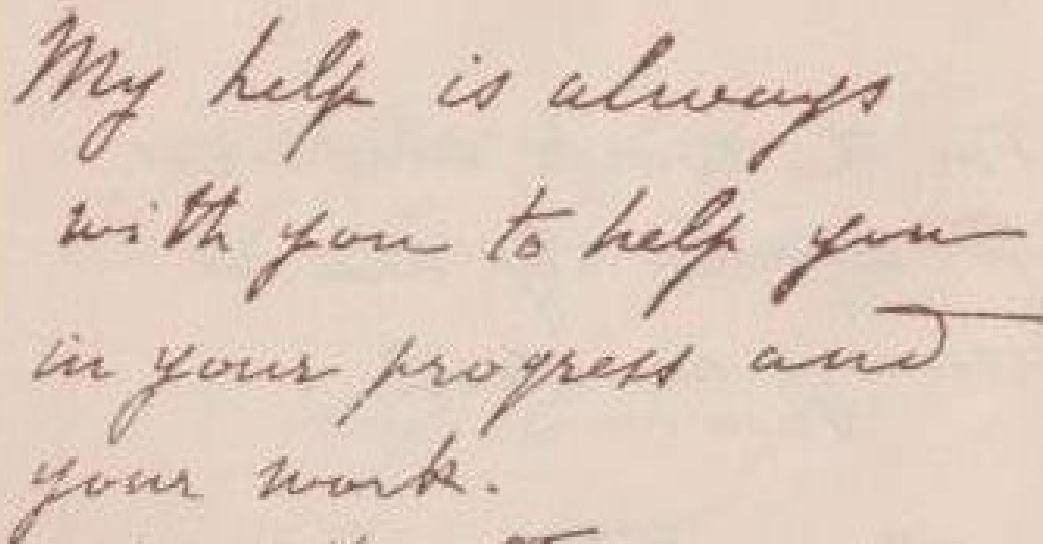 My help is always
with you to help you
in your progress and
your work.